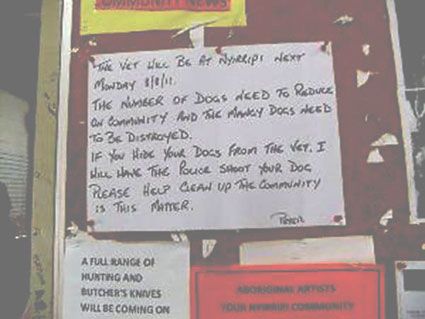 COMMUNITY NEWS
THE VET WILL BE AT NYIRRIPI NEXT
MONDAY 8/8/11.
THE NUMBER OF DOGS NEED TO REDUCE
ON COMMUNITY AND THE MANGY DOGS NEED
TO BE DISTROYED.
IF YOU HIDE YOUR DOGS FROM THE VET. I
WILL HAVE THE POLICE SHOOT YOUR DOG
PLEASE HELP CLEAN UP THE COMMUNITY
IS THIS MATTER.
A FULL RANGE OF
HUNTING AND
BUTCHER'S KNIVES
WILL BE COMING ON
ABORIGINAL ARTISTS
YOUR NYIRRIPI COMMUNITY